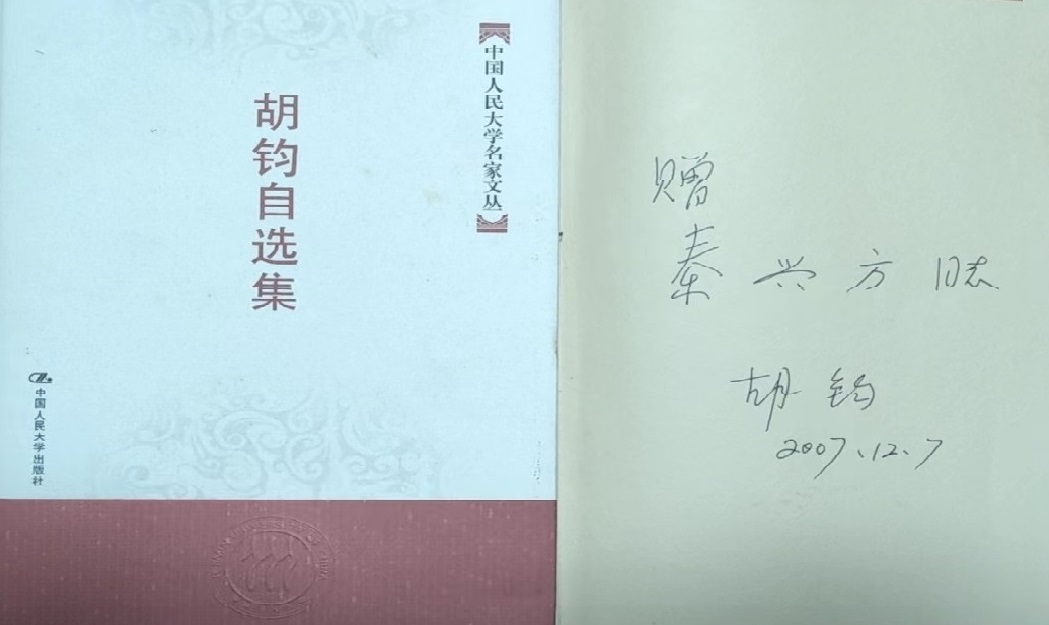 胡钧自选集
中国人民大学名家文丛
中国人民大学出版社
赠
秦兴方同志
胡钧
2007.12.7